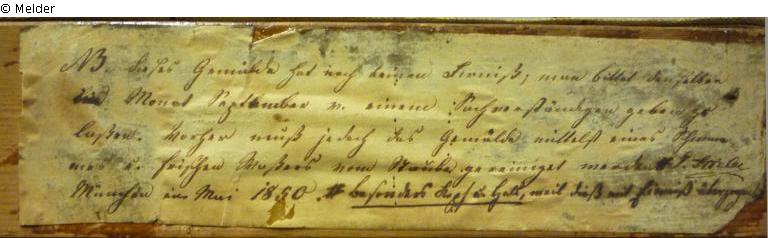 © Melder
NB. dieses Gemälde hat noch keinen Firniß; man bittet denselben
Monat September v. einem Sachverständigen geben zu
laßen. Vorher muß jedoch das Gemälde mittelst eines Schwam-
mes u. frischen Waßers vom Staube gereiniget werden #
München im Mai 1850. # besonders Kopf u. Hals, weil dieß mit Firniß überzogen